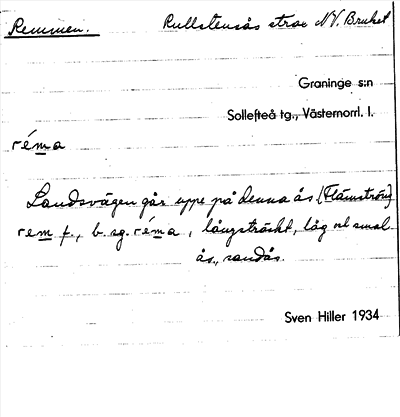 Remmen. Rullstensås strax NV. Bruket
Graninge s:n
Sollefteå tg., Västernorrl. l.
réma
Landsvägen går uppe på denna ås (Flämström)
rem f., b. sg. réma, långsträckt, låg och smal
ås, sandås.
Sven Hiller 1934